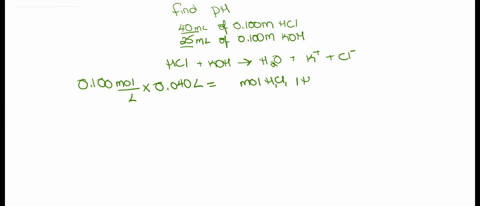 find pH
40mL of 0.100m HCl
25mL of 0.100m KOH
HCl + KOH → H₂O + K⁺ + Cl⁻
0.100 mol/L × 0.040L = mol HCl, 1H